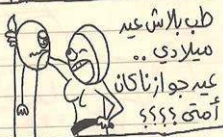 طب بلاش عيد
ميلادي ..
عيد جوازنا كان
أمتى ؟؟؟؟